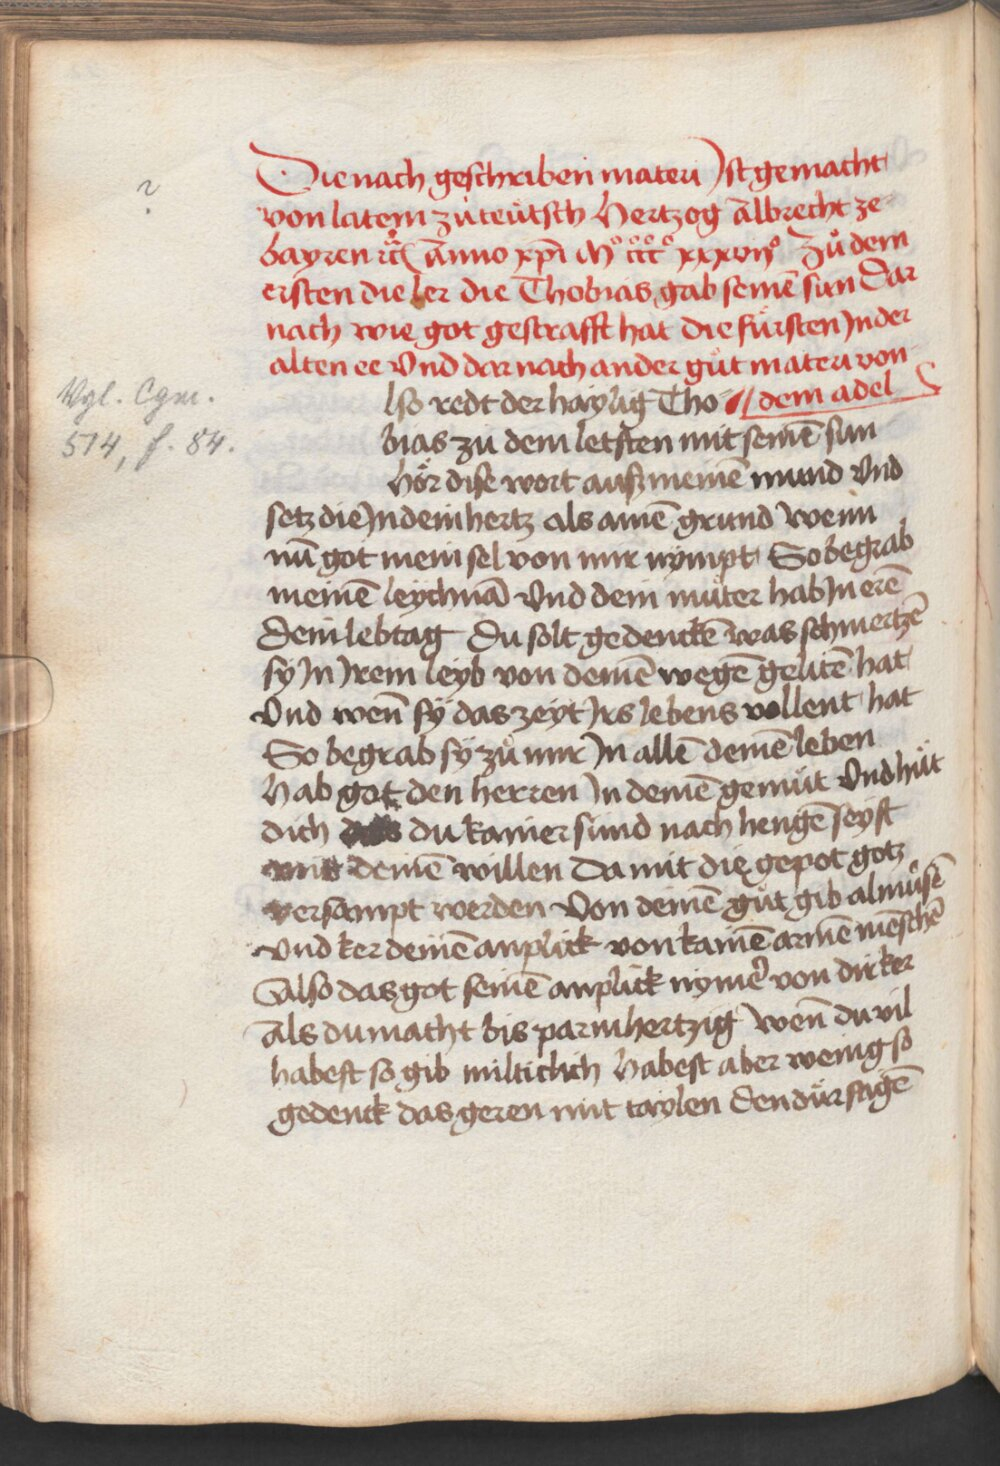 Die nach geschriben materi Ist gemacht
von latein zu teütsch Hertzog albrecht ze
bayren ꝛc Anno xpi Mº ccccº xxxviijº Zů dem
ersten die ler die Thobias gab seinē sun Dar
nach wie got gestrafft hat die fürsten Jn der
alten ee Vnd dar nach ander gůt materi von
dem adel
Vgl. Cgm.
574, f. 84.
?
lso redt der haylig Tho
bias zu dem letsten mit seinē sun
Hör dise wort ausz meinē mund Vnd
setz die Jn dein hertz als ainē grund Wenn
nū got mein sel von mir nympt So begrab
meinē leychnā Vnd dein můter hab Jn erē
Dein lebtag Du solt gedenckē was schmertzē
sy Jn Jrem leyb von deinē wegē gelitē hat
Vnd wen̄ sy das zeyt Jrs lebens vollent hat
So begrab sy zů mir Jn allē deinē leben
Hab got den herren Jn deinē gemüt Vnd hüt
dich du kainer sünd nach hengē seyst
mit deinē willen Da mit die gepot gotz
versampt werden Von deinē gůt gib almůsē
vnd ker deinē anplick von kainē armē mēschē
Also das got seinē anplick nymer von dir ker
Als du macht bis parmhertzig Wen̄ du vil
habest so gib milticlich Habest aber wenig so
gedenck das geren mit taylen Den dürftigē